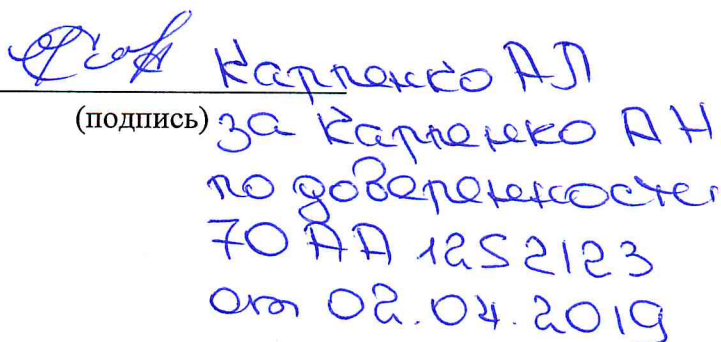 Карпенко АЛ
(подпись) за Карпенко АН
по доверенности
70 АА 1252123
от 02.04.2019